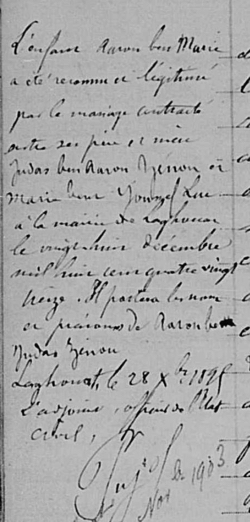 L'enfant Aaron ben Marie
a été reconnu et légitimé
par le mariage contracté
entre ses père et mère
Judas ben Aaron Zénou et
Marie bent Youssef
à la mairie de Laghouat
le vingt huit décembre
mil huit cent quatre vingt
treize. Il portera les nom
et prénoms de Aaron ben
Judas Zénou
Laghouat, le 28 Xbre 1895
L'adjoint, officier de l'Etat
civil,
Nov 1933